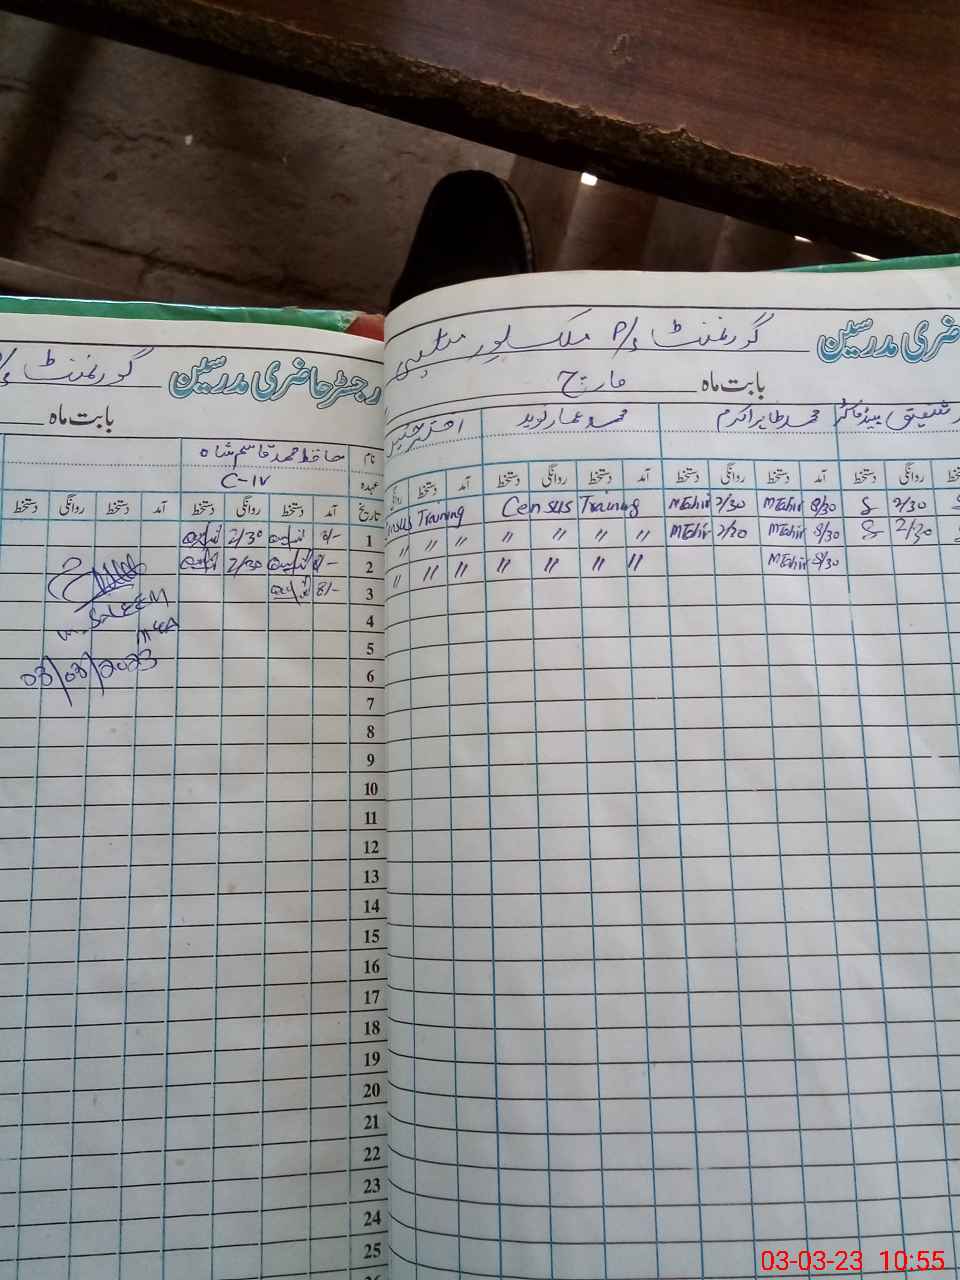 رجسٹر حاضری مدرسین گورنمنٹ
بابت ماہ
نام حافظ محمد قاسم شاہ
عہدہ C-IV
تاریخ آمد دستخط روانگی دستخط آمد دستخط روانگی دستخط
1 8/- 2/30
2 8/- 2/30
3 8/-
4
5
6
7
8
9
10
11
12
13
14
15
16
17
18
19
20
21
22
23
24
25
M. SALEEM
MEA
03/03/2023
حاضری مدرسین گورنمنٹ P/S
بابت ماہ مارچ
شفیق ہیڈ ماسٹر محمد طاہر اکرم محمد عمار نوید اختر
روانگی دستخط آمد دستخط روانگی دستخط آمد دستخط روانگی دستخط آمد دستخط
2/30 8/30 MTahir 2/30 MTahir Census Training Census Training
2/30 8/30 MTahir 2/30 MTahir " " " " " " "
8/30 MTahir " " " " " " "
03-03-23 10:55